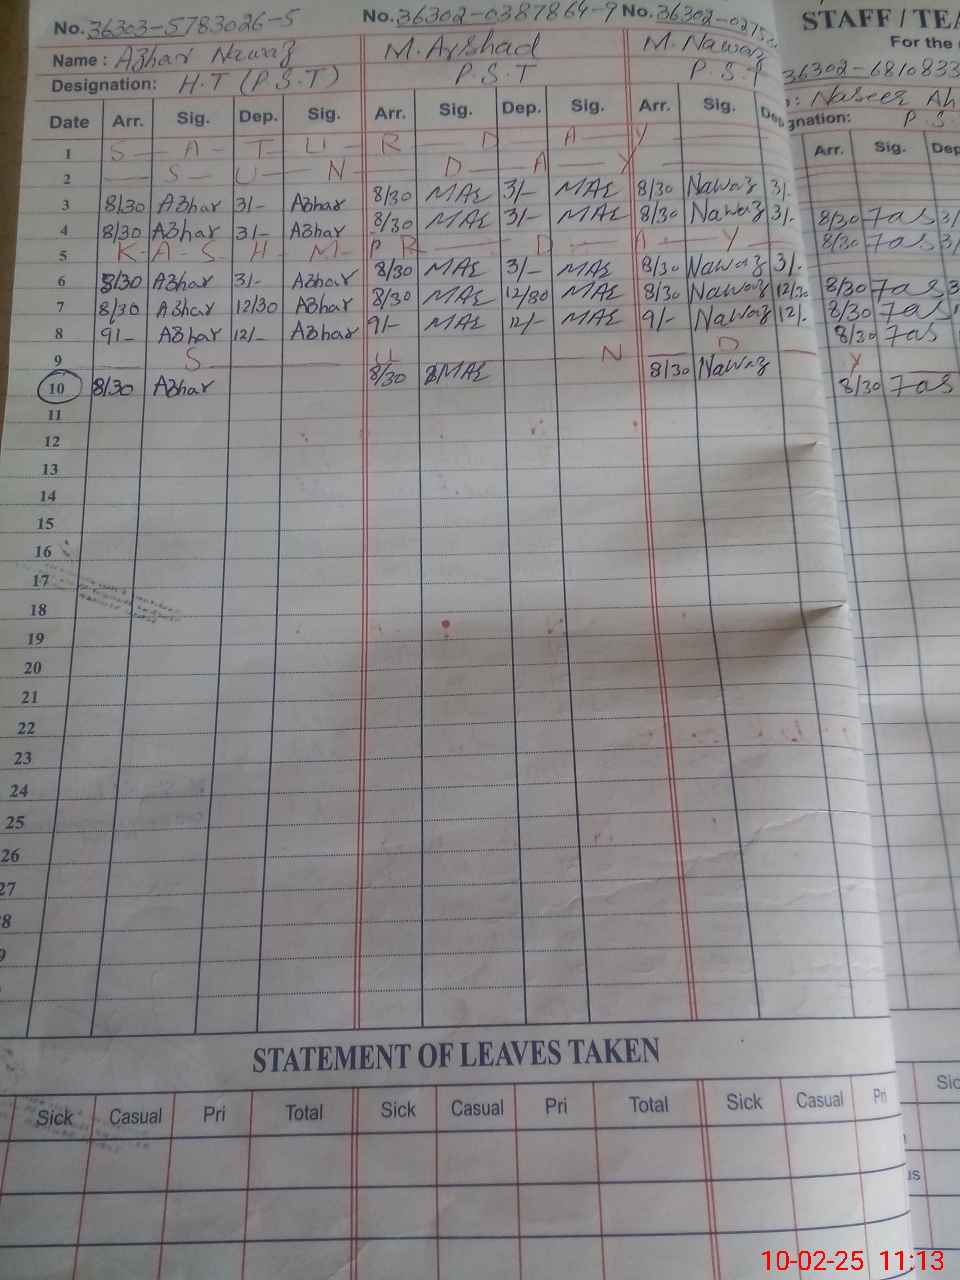 No. 36303-5783026-5 No. 36302-0387864-9 No. 36302-0275 STAFF / TEA
For the
Name : Azhar Nawaz M. Arshad M. Nawaz 36302-6810833
Designation: H.T (P.S.T) P.S.T P.S.T Naseer Ah
gnation: P.S.
Date Arr. Sig. Dep. Sig. Arr. Sig. Dep. Sig. Arr. Sig. Dep Arr. Sig. Dep
1 S A T U R D A Y
2 S U N D A Y
3 8/30 Azhar 3/- Azhar 8/30 MAS 3/- MAS 8/30 Nawaz 3/- 8/30 7as 3/
4 8/30 Azhar 3/- Azhar 8/30 MAS 3/- MAS 8/30 Nawaz 3/- 8/30 7as 3/
5 K A S H M R D A Y
6 8/30 Azhar 3/- Azhar 8/30 MAS 3/- MAS 8/30 Nawaz 3/- 8/30 7as 3
7 8/30 Azhar 12/30 Azhar 8/30 MAS 12/30 MAS 8/30 Nawaz 12/30 8/30 7as
8 9/- Azhar 12/- Azhar 9/- MAS 12/- MAS 9/- Nawaz 12/- 8/30 7as
9 S U N D A Y
10 8/30 Azhar 8/30 MAS 8/30 Nawaz 8/30 7as
11
12
13
14
15
16
17
18
19
20
21
22
23
24
25
26
27
8
9
STATEMENT OF LEAVES TAKEN
Sick Casual Pri Total Sick Casual Pri Total Sick Casual Pri Sic
us
10-02-25 11:13